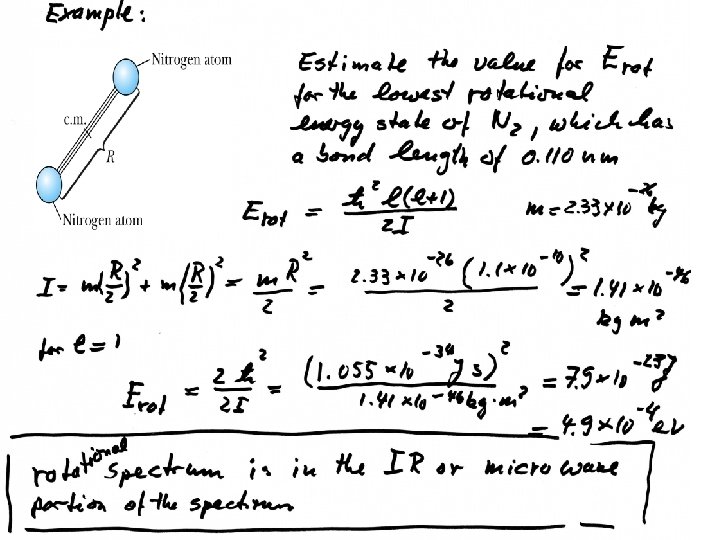 Example:
Nitrogen atom
c.m.
R
Nitrogen atom
Estimate the value for E_rot
for the lowest rotational
energy state of N₂, which has
a bond length of 0.110 nm
E_rot = ħ² ℓ(ℓ+1) / 2I
m = 2.33×10⁻²⁶ kg
I = m(R/2)² + m(R/2)² = mR²/2 = 2.33×10⁻²⁶ (1.1×10⁻¹⁰)² / 2 = 1.41×10⁻⁴⁶ kg m²
for ℓ=1
E_rot = 2ħ²/2I = (1.055×10⁻³⁴ J s)² / 1.41×10⁻⁴⁶ kg·m² = 7.9×10⁻²³ J
= 4.9×10⁻⁴ eV
rotational spectrum is in the IR or microwave
portion of the spectrum